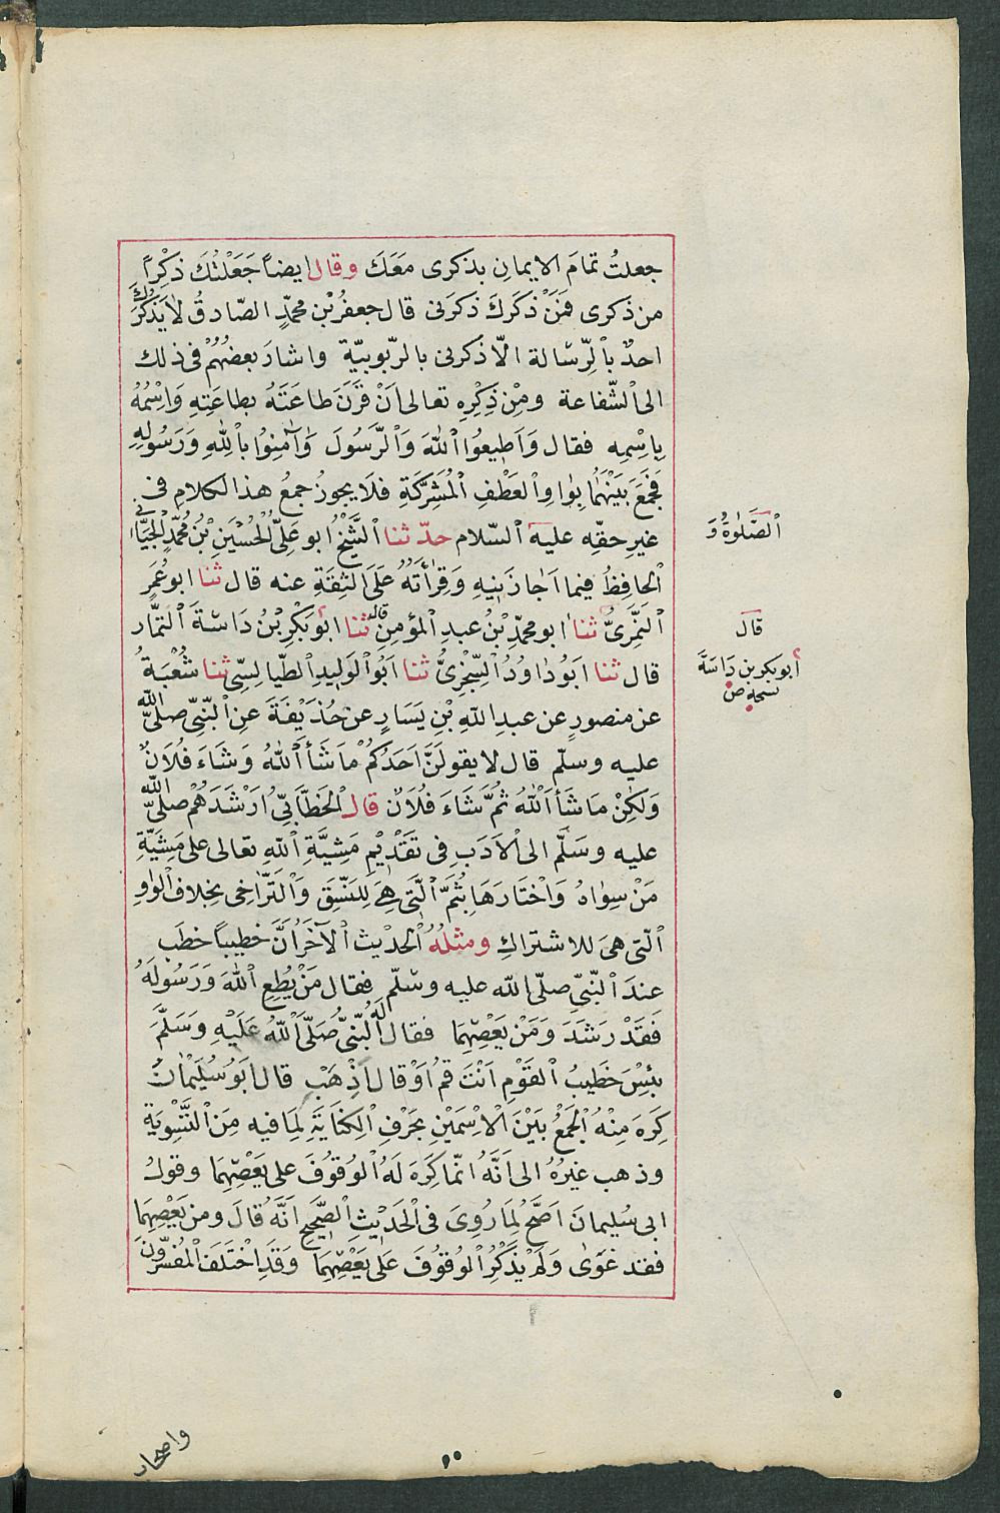 جعلتُ تمامَ الايمانِ بذكرى مَعَكَ وقال ايضاً جَعَلْتُكَ ذكْراً
من ذكرى فَمَنْ ذَكَرَكَ ذكَرَنى قال جعفرُ بْن محمّدٍ الصّادقُ لاَ يَذْكُرُكَ
احدٌ بالرّسَالة الّا ذكرنى بالرّبوبيّة واشارَ بعضُهُمْ فى ذلك
الى الشّفاعة ومِنْ ذِكْرِهِ تعالى اَنْ قَرَنَ طاعَتَهُ بطاعَتِهِ وَاسْمُهُ
بِاسْمِهِ فقال وَاَطيعُوا اللهَ وَالرَّسولَ وَآمِنُوا باللهِ وَرَسُولِهِ
فَجَمَعَ بَيْنَهُمَا بِوَاوِ العَطْفِ المُشَرِّكَةِ فلَا يجوزُ جمعُ هذا الكلامِ فى
غيرِ حقّهِ عليه السّلام حدّثنا الشَّيْخُ ابو عَلِىّ الْحُسَيْنِ بْنُ مُحمَّدٍ الجَيَّانىّ
الحافِظُ فيما اَجَازَنيهِ وَقِرَأتُهُ عَلَى الثِقَةِ عنه قال ثنا ابو عُمَرِ
النَمِرِىُّ ثنا ابو محمّدِ بْنُ عبدِ المؤمِنِ قال ثنا ابوُ بَكْرِ بْنُ دَاسَةَ التمَّار
قال ثنا اَبُو دَاودُ السِّجْزِىُّ ثنا اَبُو الوَلِيدِ الطّيالِسِىّ ثنا شُعْبَةُ
عن منصورٍ عن عبدِ اللهِ بْنِ يَسَارٍ عن حُذَيْفَةَ عَنِ النّبِىّ صلّى الله
عليه وسلّم قال لا يقولَنَّ اَحَدُكُمْ مَا شَأَ اللهُ وَشَاءَ فُلَانٌ
وَلٰكِنْ مَا شَأَ اللهُ ثُمَّ شَاءَ فلَانٌ قال الخَطَّابِىّ ارْشَدَهُمْ صلّى الله
عليه وسَلَّم الى الاَدَبِ فى تَقَدْيمِ مَشِيَّةِ اللهِ تعالى على مَشِيَّةِ
مَنْ سِوَاهُ وَاخْتَارَهَا بِثُمَّ الَّتى هِىَ لِلنَسَّقِ وَالتَّرَاخى بخِلاف الوَاوِ
الّتى هىَ للاشتراكِ ومثلهُ الحدْيث الآخَرُ اَنَّ خطيباً خطَب
عندَ النّبِىّ صلّى الله عليه وسّلم فقال مَنْ يُطِعِ اللهَ وَرَسُولَهُ
فَقَدْ رَشَدَ وَمَنْ يَعْصِهِمَا فقال لَه النَبّىُّ صَلَّى اللهُ عَلَيْهِ وَسَلَّمَ
بئسَ خَطيبُ القَوْمِ اَنْتَ قُمْ اَوْ قال اَذْهَبْ قال اَبوُ سُلَيْمانَ
كَرِهَ مِنْهُ الجَمْعُ بَيْنَ الْاِسْمَيْنِ بحَرْفِ الكِنَايَةِ لِمَا فيه مِنَ التَّسْوِيَةِ
وذهب غيرُهُ الى اَنَّهُ انّما كَرِهَ لَهُ الوُقوُفَ على يَعْصِهِمَا وقولُ
ابى سُليمانَ اَصَحُّ لِمَا رُوِىَ فى الحَدْيثِ الصَّحيحِ اَنَّهُ قالَ ومن يَعْصِهِمَا
فقد غَوَى وَلَمْ يَذْكُرِ الوُقوُفَ عَلى يَعْصِهِمَا وَقَدِ اخْتَلَفَ المُفسّرونَ
الصَّلٰوةُ وَ
قال
أبو بكر بن دَاسَةَ
نسخة ص
واصحاب